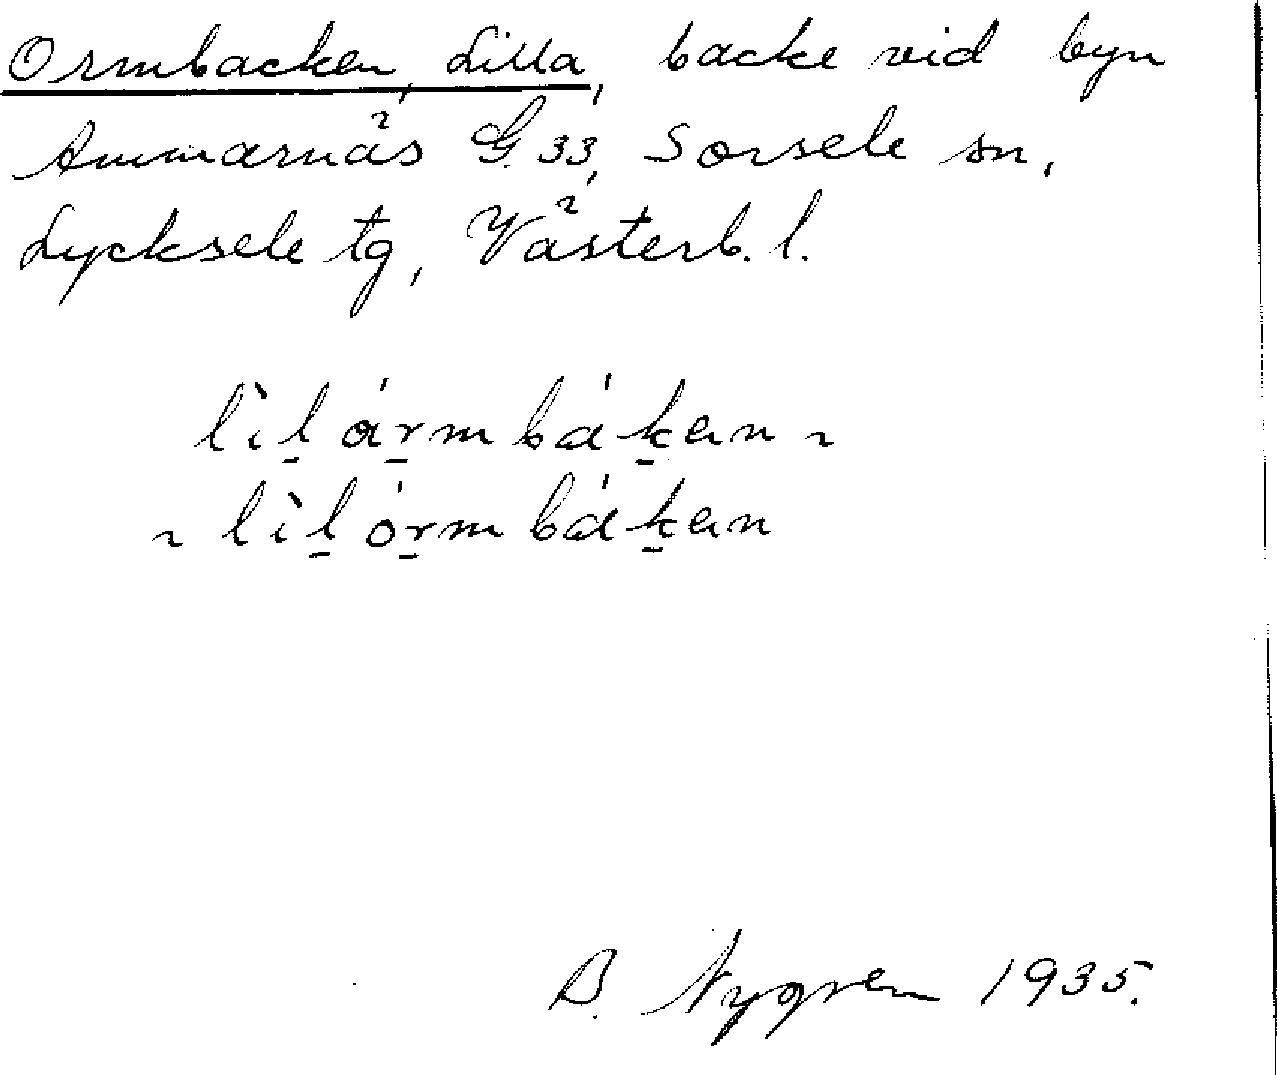 Ormbacken, Lilla, backe vid byn
Ammarnäs G. 33, Sorsele sn,
Lycksele tg, Västerb. l.
lìl̠ ár̠m bák̠en ~
~ lìl̠ ór̠m bák̠en
B. Nygren 1935.